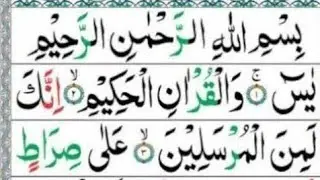 بِسْمِ اللهِ الرَّحْمٰنِ الرَّحِيْمِ
يٰسٓ ۚ﴿۱﴾ وَالْقُرْاٰنِ الْحَكِيْمِ ۙ﴿۲﴾ اِنَّكَ
لَمِنَ الْمُرْسَلِيْنَ ۙ﴿۳﴾ عَلٰى صِرَاطٍ